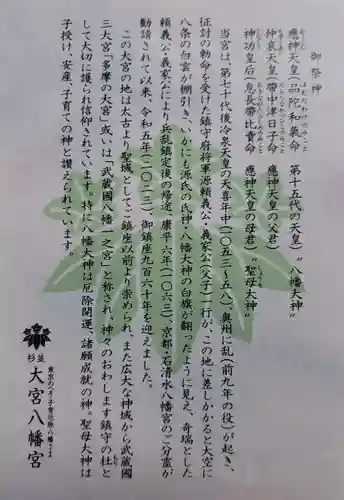 御祭神
應神天皇(品陀和義命 第十五代の天皇)〝八幡大神〟
仲哀天皇(帶中津日子命 應神天皇の父君)
神功皇后(息長帶比賣命 應神天皇の母君)〝聖母大神〟
当宮は、第七十代後冷泉天皇の天喜年中(一〇五三〜五八)奥州に乱(前九年の役)が起き、
征討の勅命を受けた鎮守府将軍源頼義公・義家公(父子)一行が、この地に差しかかると大空に
八条の白雲が棚引き、いかにも源氏の氏神・八幡大神の白旗が翻ったように見え、奇瑞とした
頼義公・義家公により兵乱鎮定後の帰途、康平六年(一〇六三)、京都・石清水八幡宮のご分霊が
勧請されて以来、令和五年(二〇二三)、御鎮座九百六十年を迎えました。
この大宮の地は太古より聖域としてご鎮座以前より崇められ、また広大な神域から武蔵國
三大宮「多摩の大宮」或いは「武蔵國八幡一之宮」と称され、神々のおわします鎮守の杜と
して大切に護られ信仰されています。特に八幡大神は厄除開運、諸願成就の神。聖母大神は
子授け、安産、子育ての神と讃えられています。
東京のへそ・子育厄除八幡さま
杉並
大宮八幡宮